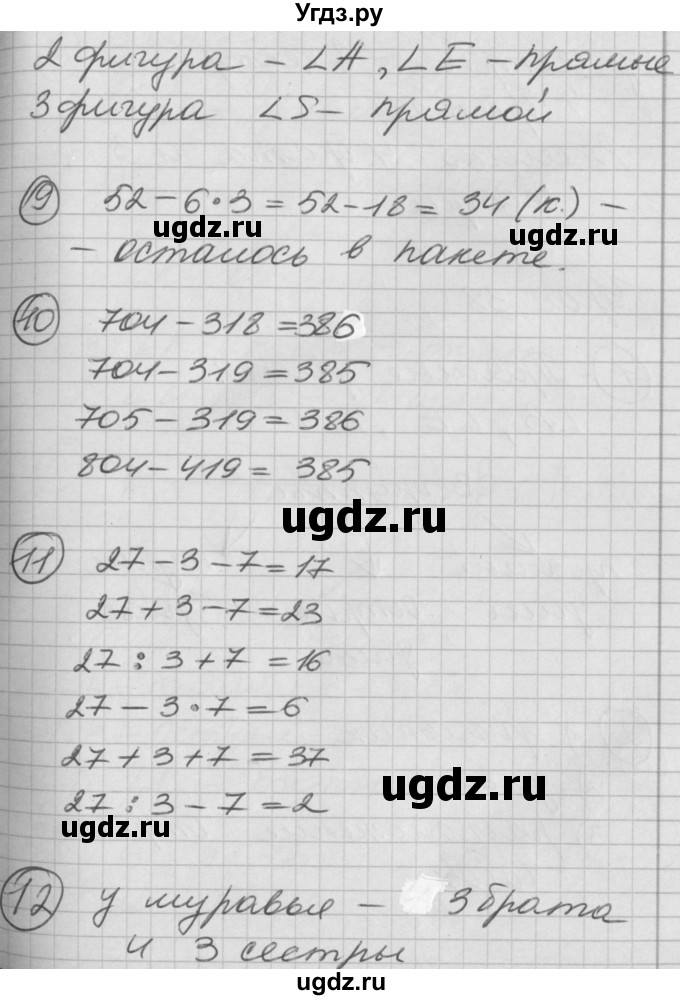 Угдз.ру
2 фигура – ∠A, ∠E – прямые
3 фигура ∠S – прямой
9 52 – 6 · 3 = 52 – 18 = 34 (к.) –
ugdz.ru ugdz.ru
– осталось в пакете.
10 704 – 318 = 386
704 – 319 = 385
705 – 319 = 386
804 – 419 = 385
ugdz.ru
11 27 – 3 – 7 = 17
27 + 3 – 7 = 23
27 : 3 + 7 = 16
27 – 3 · 7 = 6
27 + 3 + 7 = 37
ugdz.ru
27 : 3 – 7 = 2
ugdz.ru
12 у муравья – 3 брата
и 3 сестры
ugdz.ru